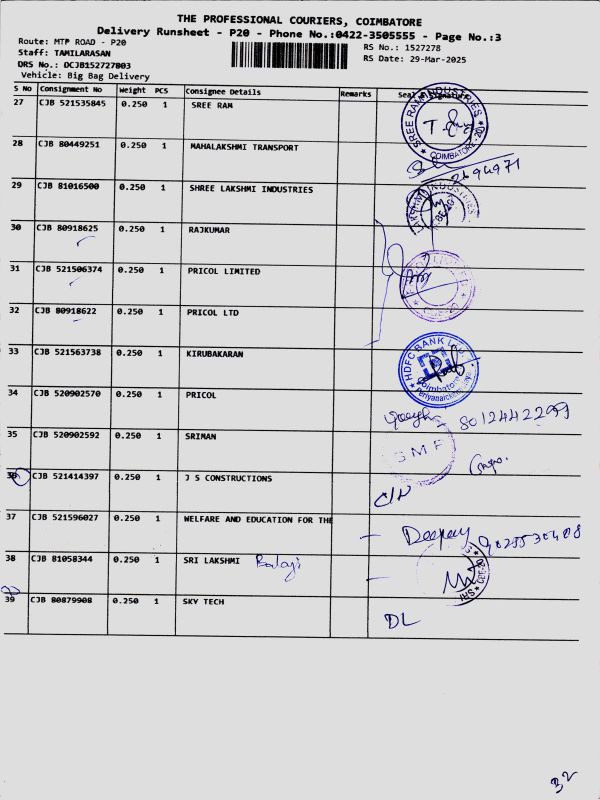 THE PROFESSIONAL COURIERS, COIMBATORE
Delivery Runsheet - P20 - Phone No.:0422-3505555 - Page No.:3
Route: MTP ROAD - P20 RS No.: 1527278
Staff: TAMILARASAN RS Date: 29-Mar-2025
DRS No.: DCJB152727803
Vehicle: Big Bag Delivery
S No Consignment No Weight PCS Consignee Details Remarks
27 CJB 521535845 0.250 1 SREE RAM
SREE RAM INDUSTRIES COIMBATORE-20
28 CJB 80449251 0.250 1 MAHALAKSHMI TRANSPORT
2694971
29 CJB 81016500 0.250 1 SHREE LAKSHMI INDUSTRIES
30 CJB 80918625 0.250 1 RAJKUMAR
31 CJB 521506374 0.250 1 PRICOL LIMITED
32 CJB 80918622 0.250 1 PRICOL LTD
33 CJB 521563738 0.250 1 KIRUBAKARAN
HDFC BANK Ltd. Coimbatore
34 CJB 520902570 0.250 1 PRICOL
8012442299
35 CJB 520902592 0.250 1 SRIMAN
SMF
36 CJB 521414397 0.250 1 J S CONSTRUCTIONS
C/N
37 CJB 521596027 0.250 1 WELFARE AND EDUCATION FOR THE
38 CJB 81058344 0.250 1 SRI LAKSHMI Balaji
39 CJB 80879908 0.250 1 SKY TECH
DL
32